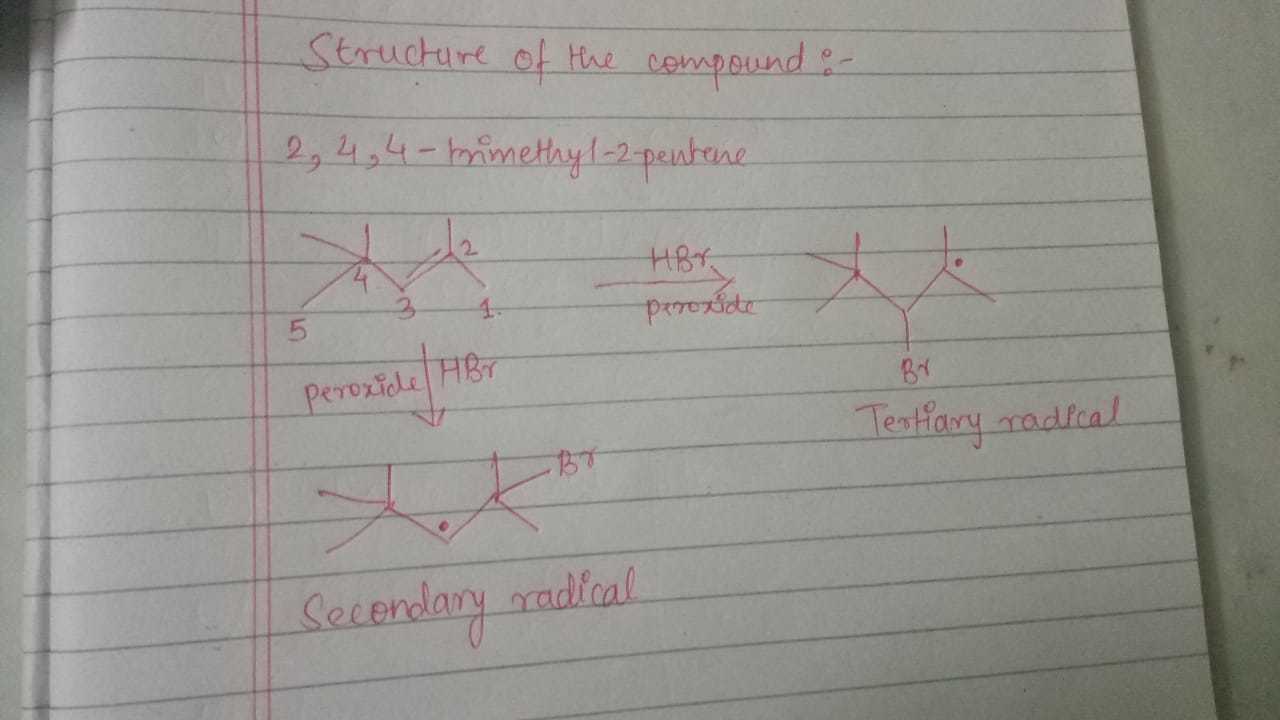 Structure of the compound :-
2, 4, 4 - trimethyl-2-pentene
4
2
5
3
1.
HBr
peroxide
Br
Tertiary radical
peroxide HBr
Br
Secondary radical